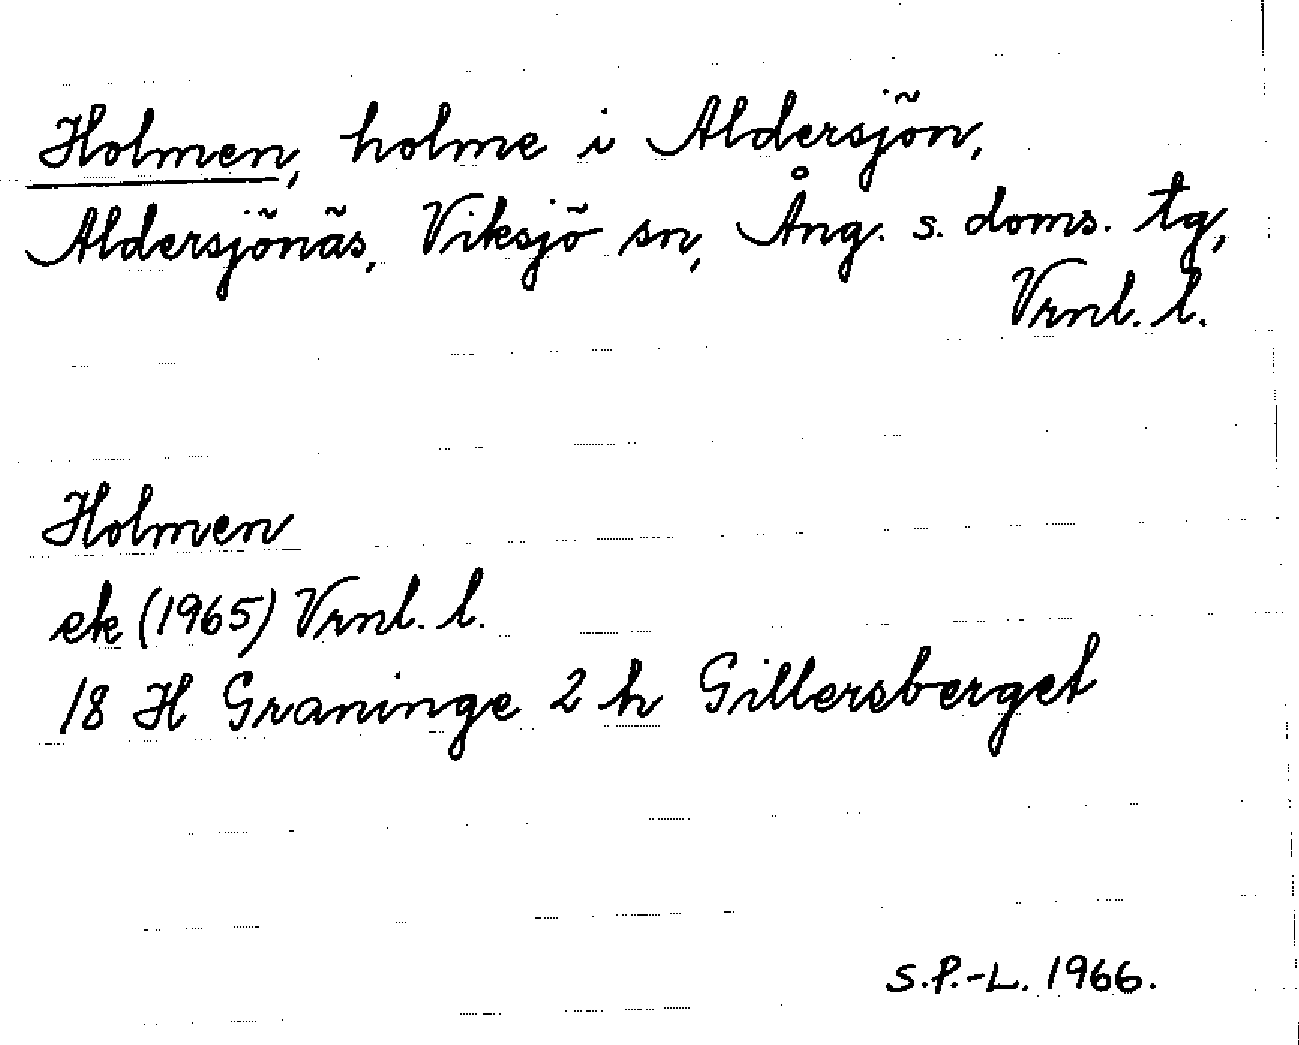 Holmen, holme i Aldersjön,
Aldersjönäs, Viksjö sn, Ång. s. doms. tg,
Vrnl. l.
Holmen
ek (1965) Vrnl. l.
18 H Graninge 2 h Gillersberget
S.P.-L. 1966.